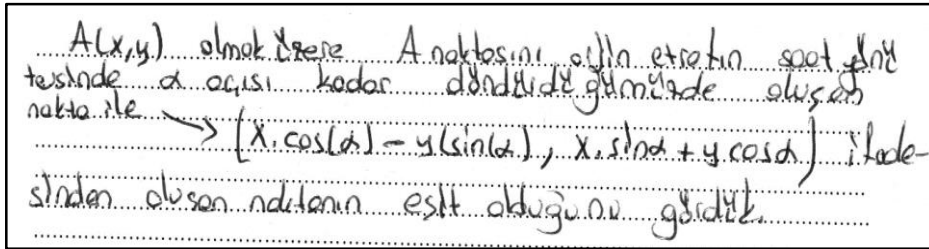 A(x,y) olmak üzere A noktasını orjin etrafın saat yönü
tersinde α açısı kadar döndürdüğümüzde oluşan
nokta ile → (x.cos(α) - y(sin(α), x.sinα + y cosα) ifade-
sinden oluşan noktanın eşit olduğunu gördük.